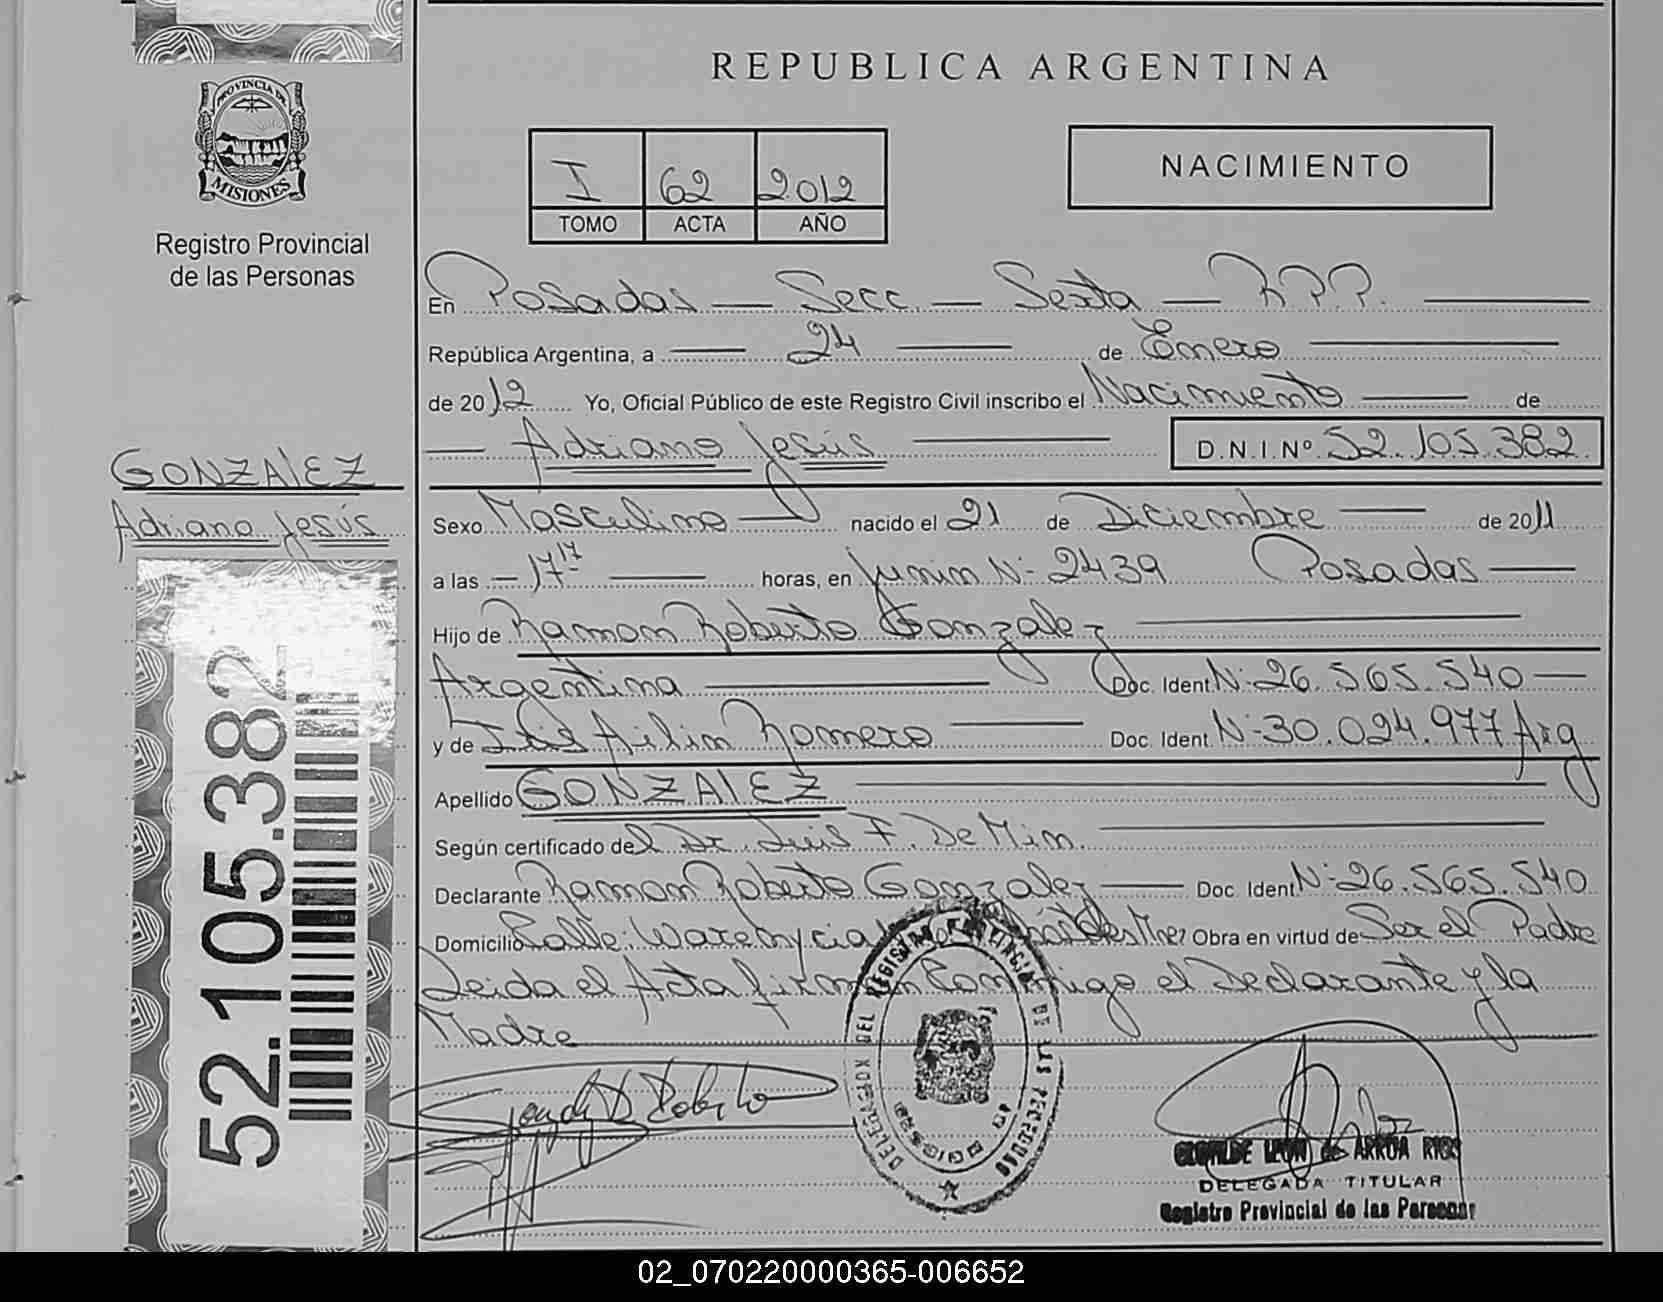 REPUBLICA ARGENTINA
PROVINCIA DE
MISIONES
Registro Provincial
de las Personas
I 62 2012
TOMO ACTA AÑO
NACIMIENTO
En Posadas — Secc. — Sexta — R.P.P. —
República Argentina, a — 24 — de Enero —
de 2012 Yo, Oficial Público de este Registro Civil inscribo el Nacimiento — de
— Adriano Jesús — D.N.I.Nº 52.105.382
GONZALEZ
Adriano Jesús
Sexo Masculino — nacido el 21 de Diciembre — de 2011
a las — 17 17 — horas, en Junin Nº 2439 Posadas —
Hijo de Ramon Roberto Gonzalez —
Argentina — Doc. Ident. Nº 26.565.540 —
y de Ailin Romero — Doc. Ident. Nº 30.024.977 Arg
Apellido GONZALEZ —
Según certificado del Dr. Luis F. De Mim. —
Declarante Ramon Roberto Gonzalez — Doc. Ident. Nº 26.565.540
Domicilio Calle: Obra en virtud de Ser el Padre
Leida el Acta firman Conmigo el Declarante y la
Madre
52.105.382
DELEGACION DEL REGISTRO PROVINCIAL DE LAS PERSONAS
MISIONES
DELEGADA TITULAR
Registro Provincial de las Personas
02_070220000365-006652